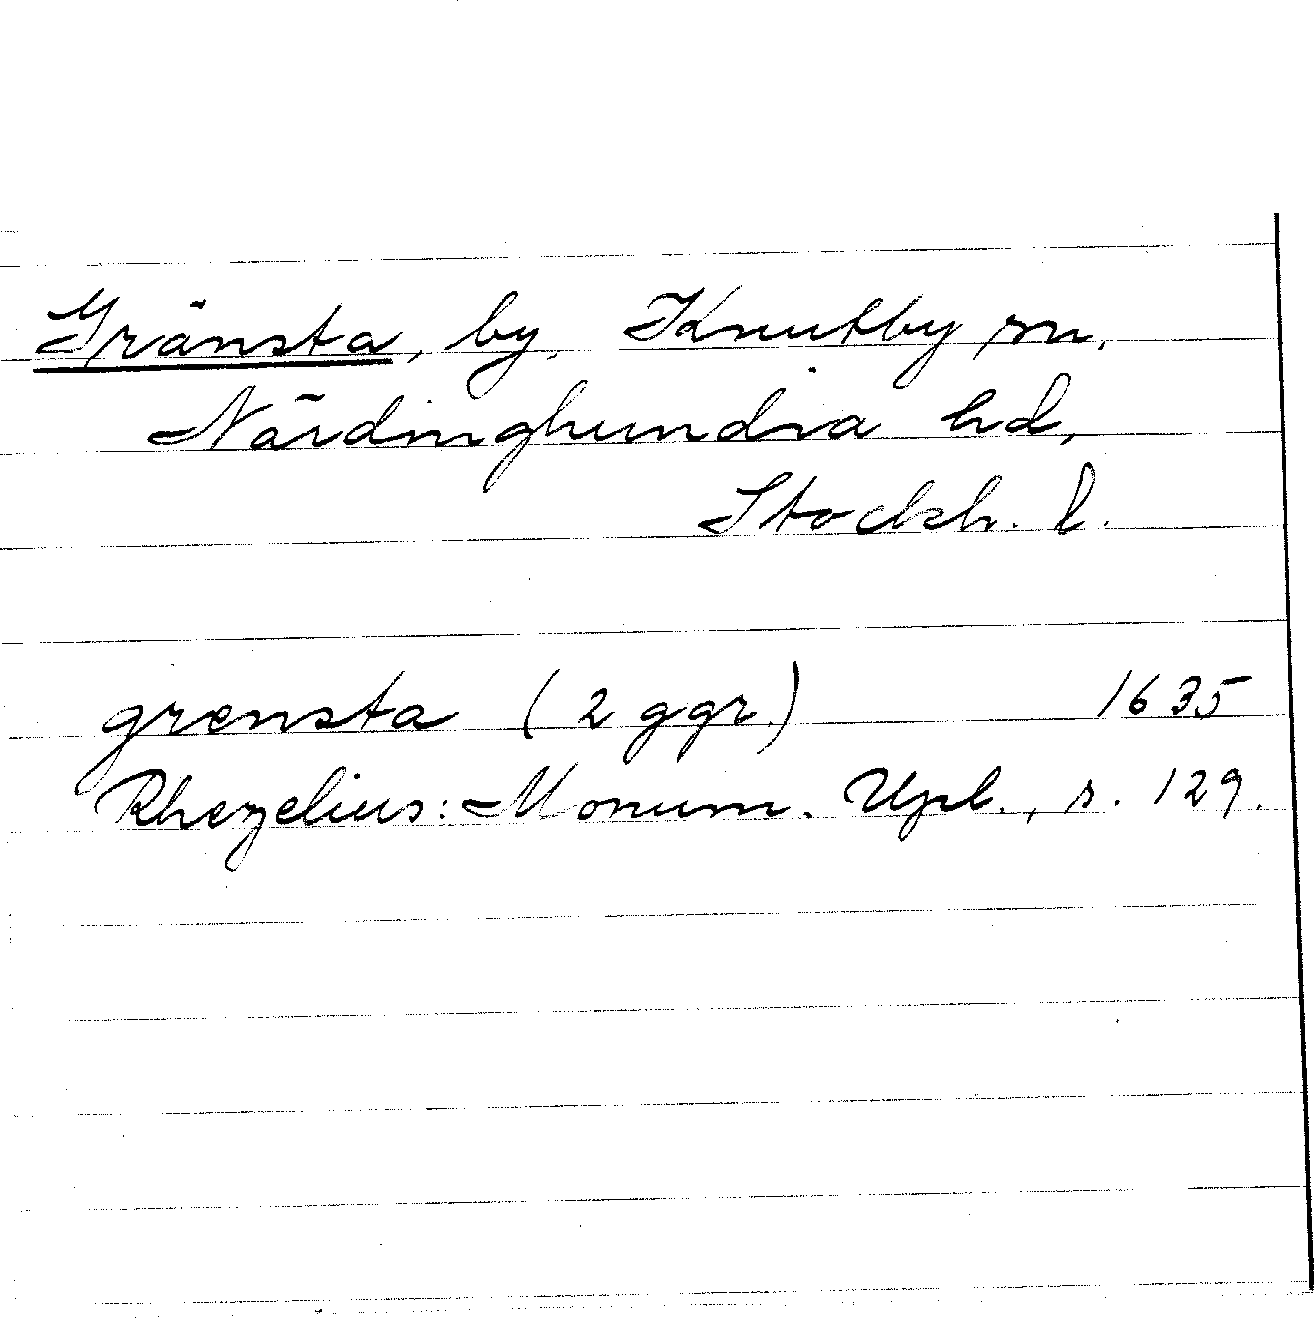 Gränsta, by, Knutby sn,
Närdinghundra hd,
Stockh. l.
grensta (2 ggr.) 1635
Rhezelius: Monum. Upl., s. 129.